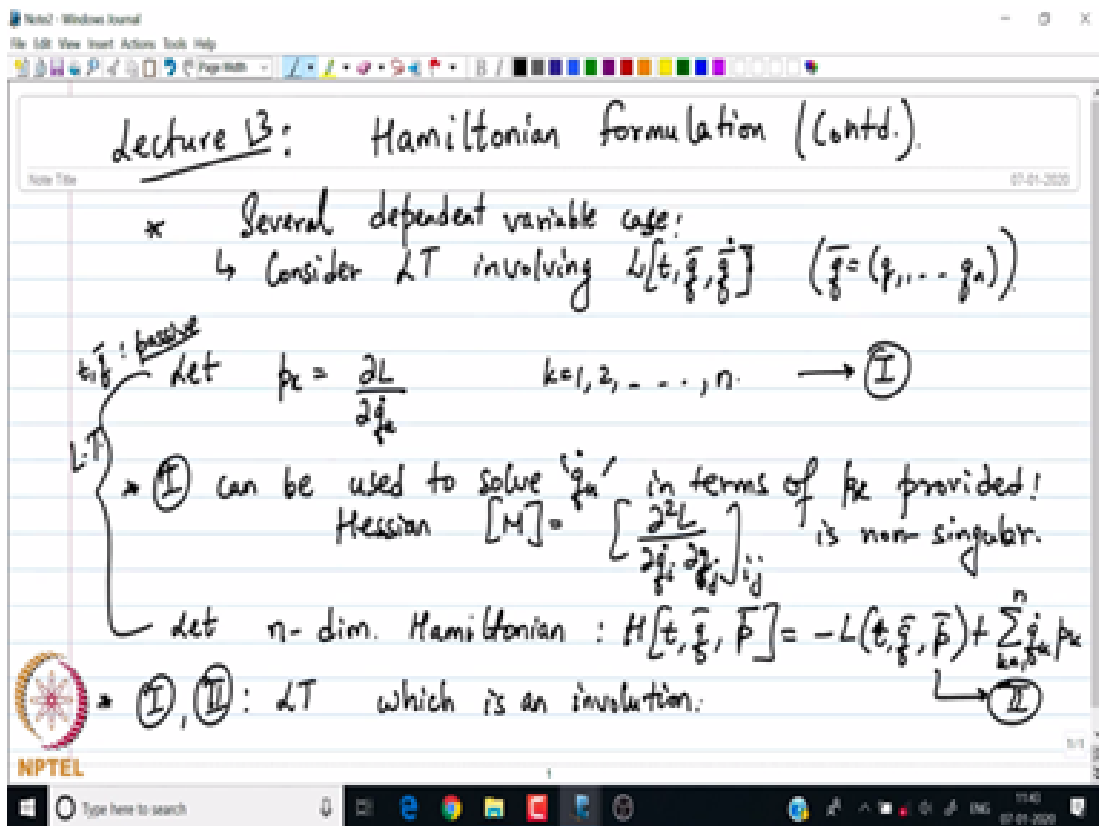 Note2 - Windows Journal
File Edit View Insert Actions Tools Help
Page Width
B I
Lecture 13: Hamiltonian Formulation (Contd.)
Note Title
07-01-2020
* Several dependent variable case:
↳ Consider LT involving L[t, q̄, q̄̇] (q̄ = (q₁, ... qₙ))
t, q̄ : passive
Let pₖ = ∂L/∂q̇ₖ k=1, 2, - - - ., n. → (I)
L.T
* (I) can be used to solve 'q̇ₖ' in terms of pₖ provided!
Hessian [M] = [∂²L/∂q̇ᵢ ∂q̇ⱼ]ᵢⱼ is non-singular.
Let n-dim. Hamiltonian : H[t, q̄, p̄] = -L(t, q̄, p̄) + Σₖ₌₁ⁿ q̇ₖ pₖ
→ (II)
* (I), (II) : LT which is an involution.
NPTEL
1/1
1
Type here to search
ENG
11:40
07-01-2020